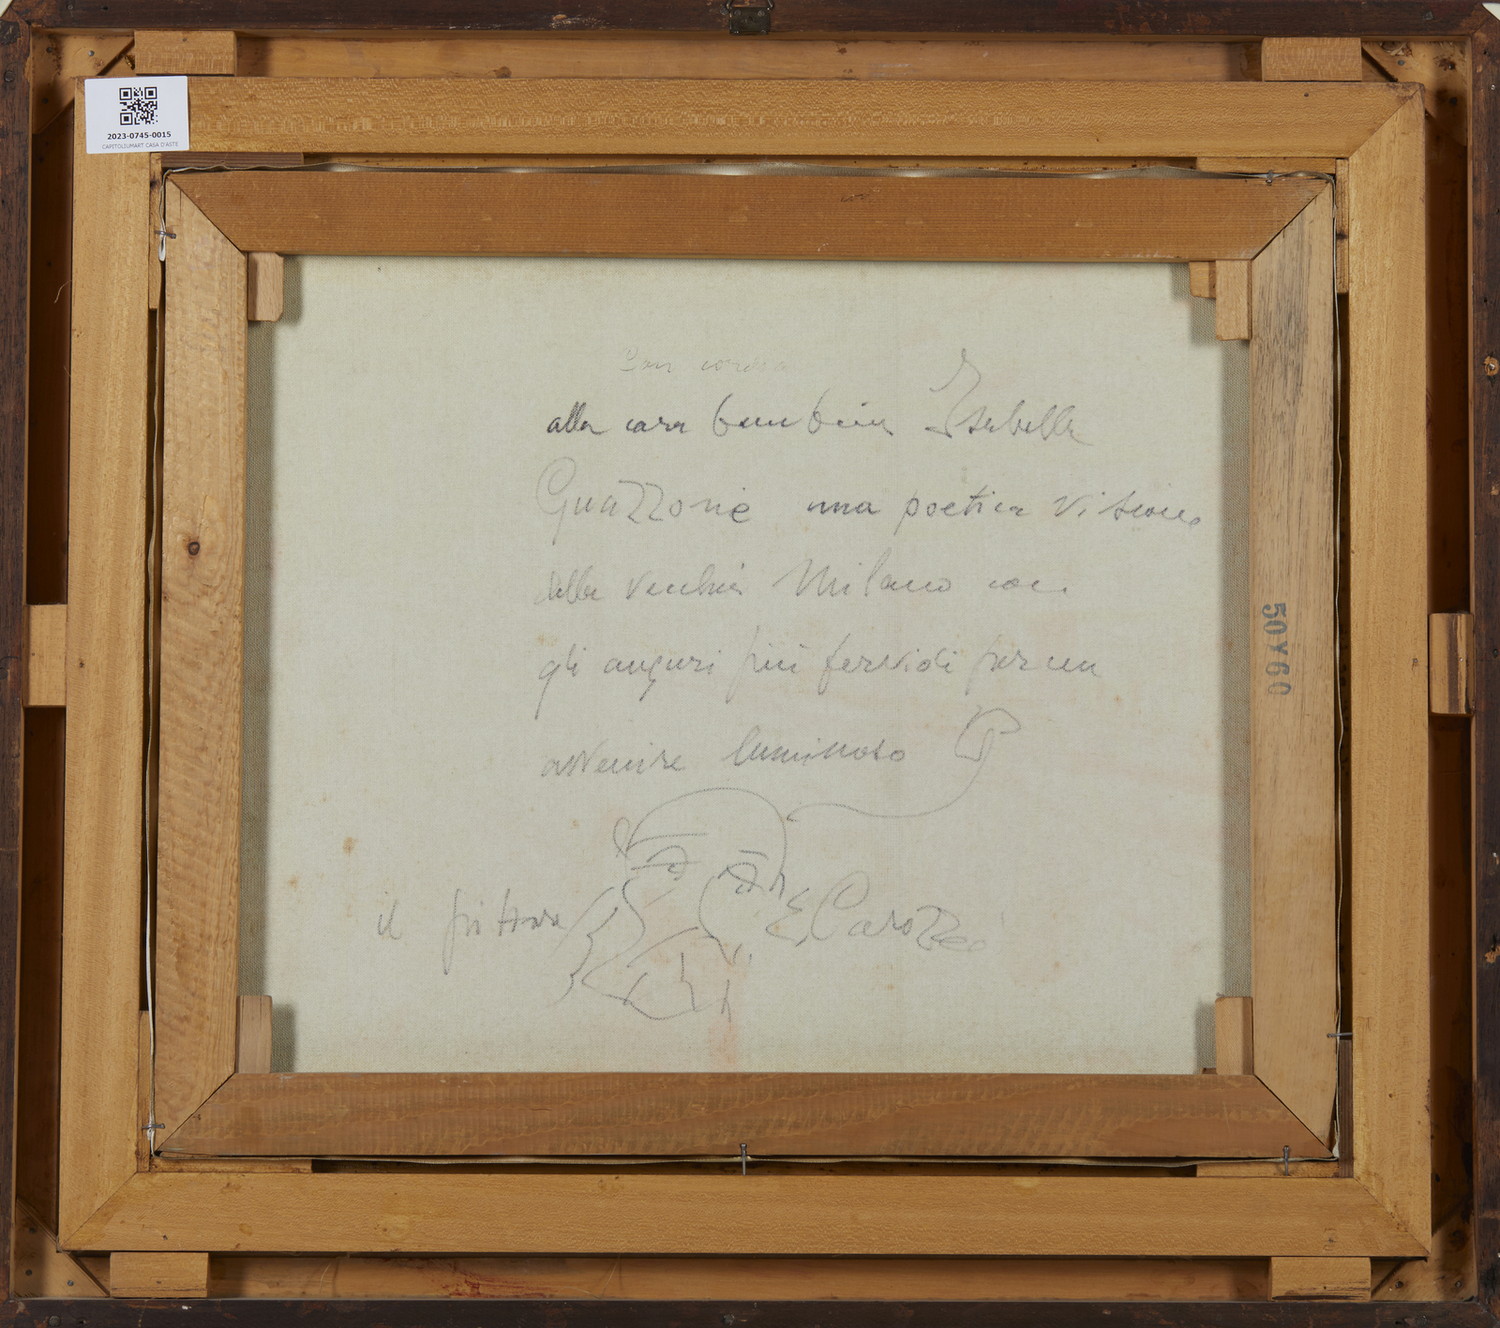 2023-0745-0015
CAPITOLIUMART CASA D'ASTE
Con
alla cara bambina Isabella
Guazzoni una poetica visione
della vecchia Milano con
gli auguri più fervidi per un
avvenire luminoso
il pittore E Carozzi
50Y60